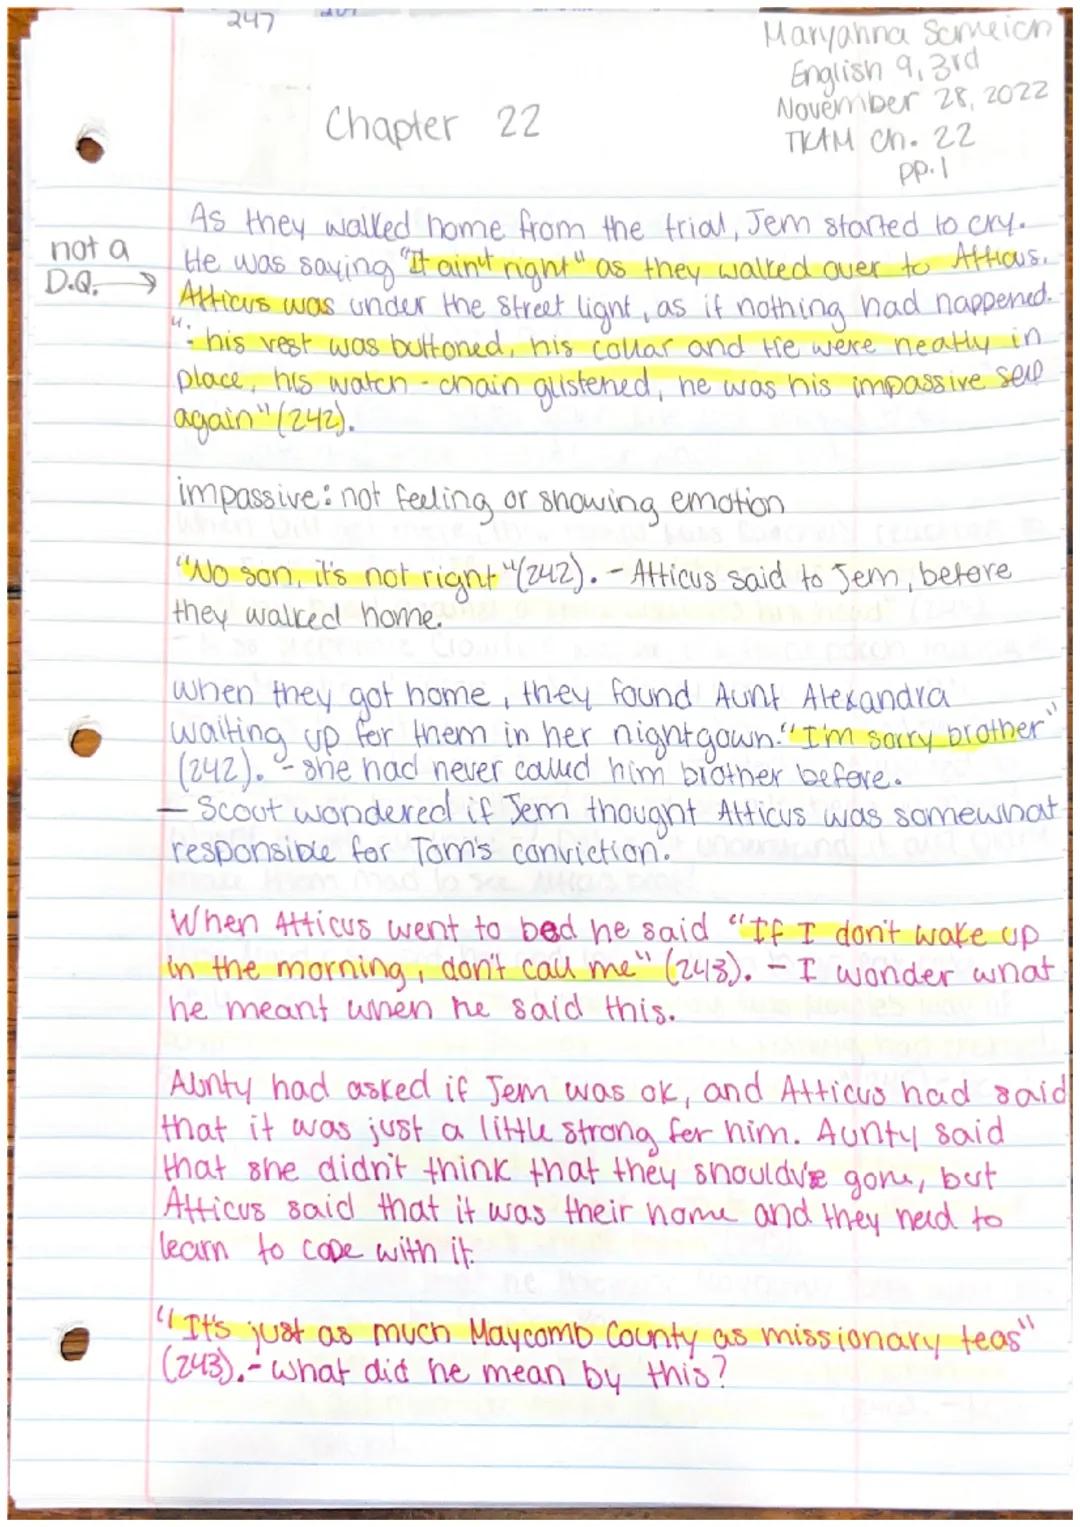 247
Maryahna Sameian
English 9, 3rd
November 28, 2022
TKAM Ch. 22
pp. 1
Chapter 22
As they walked home from the trial, Jem started to cry.
not a
D.Q. →
He was saying "It ain't right" as they walked over to Atticus.
Atticus was under the street light, as if nothing had happened.
"... his vest was buttoned, his collar and tie were neatly in
place, his watch-chain glistened, he was his impassive self
again" (242).
impassive: not feeling or showing emotion
"No son, it's not right" (242). - Atticus said to Jem, before
they walked home.
When they got home, they found Aunt Alexandra
waiting up for them in her nightgown. "I'm sorry brother"
(242). - she had never called him brother before.
— Scout wondered if Jem thought Atticus was somewhat
responsible for Tom's conviction.
When Atticus went to bed he said "If I don't wake up
in the morning, don't call me" (243). - I wonder what
he meant when he said this.
Aunty had asked if Jem was ok, and Atticus had said
that it was just a little strong for him. Aunty said
that she didn't think that they should've gone, but
Atticus said that it was their home and they need to
learn to cope with it.
"It's just as much Maycomb County as missionary teas"
(243). - what did he mean by this?